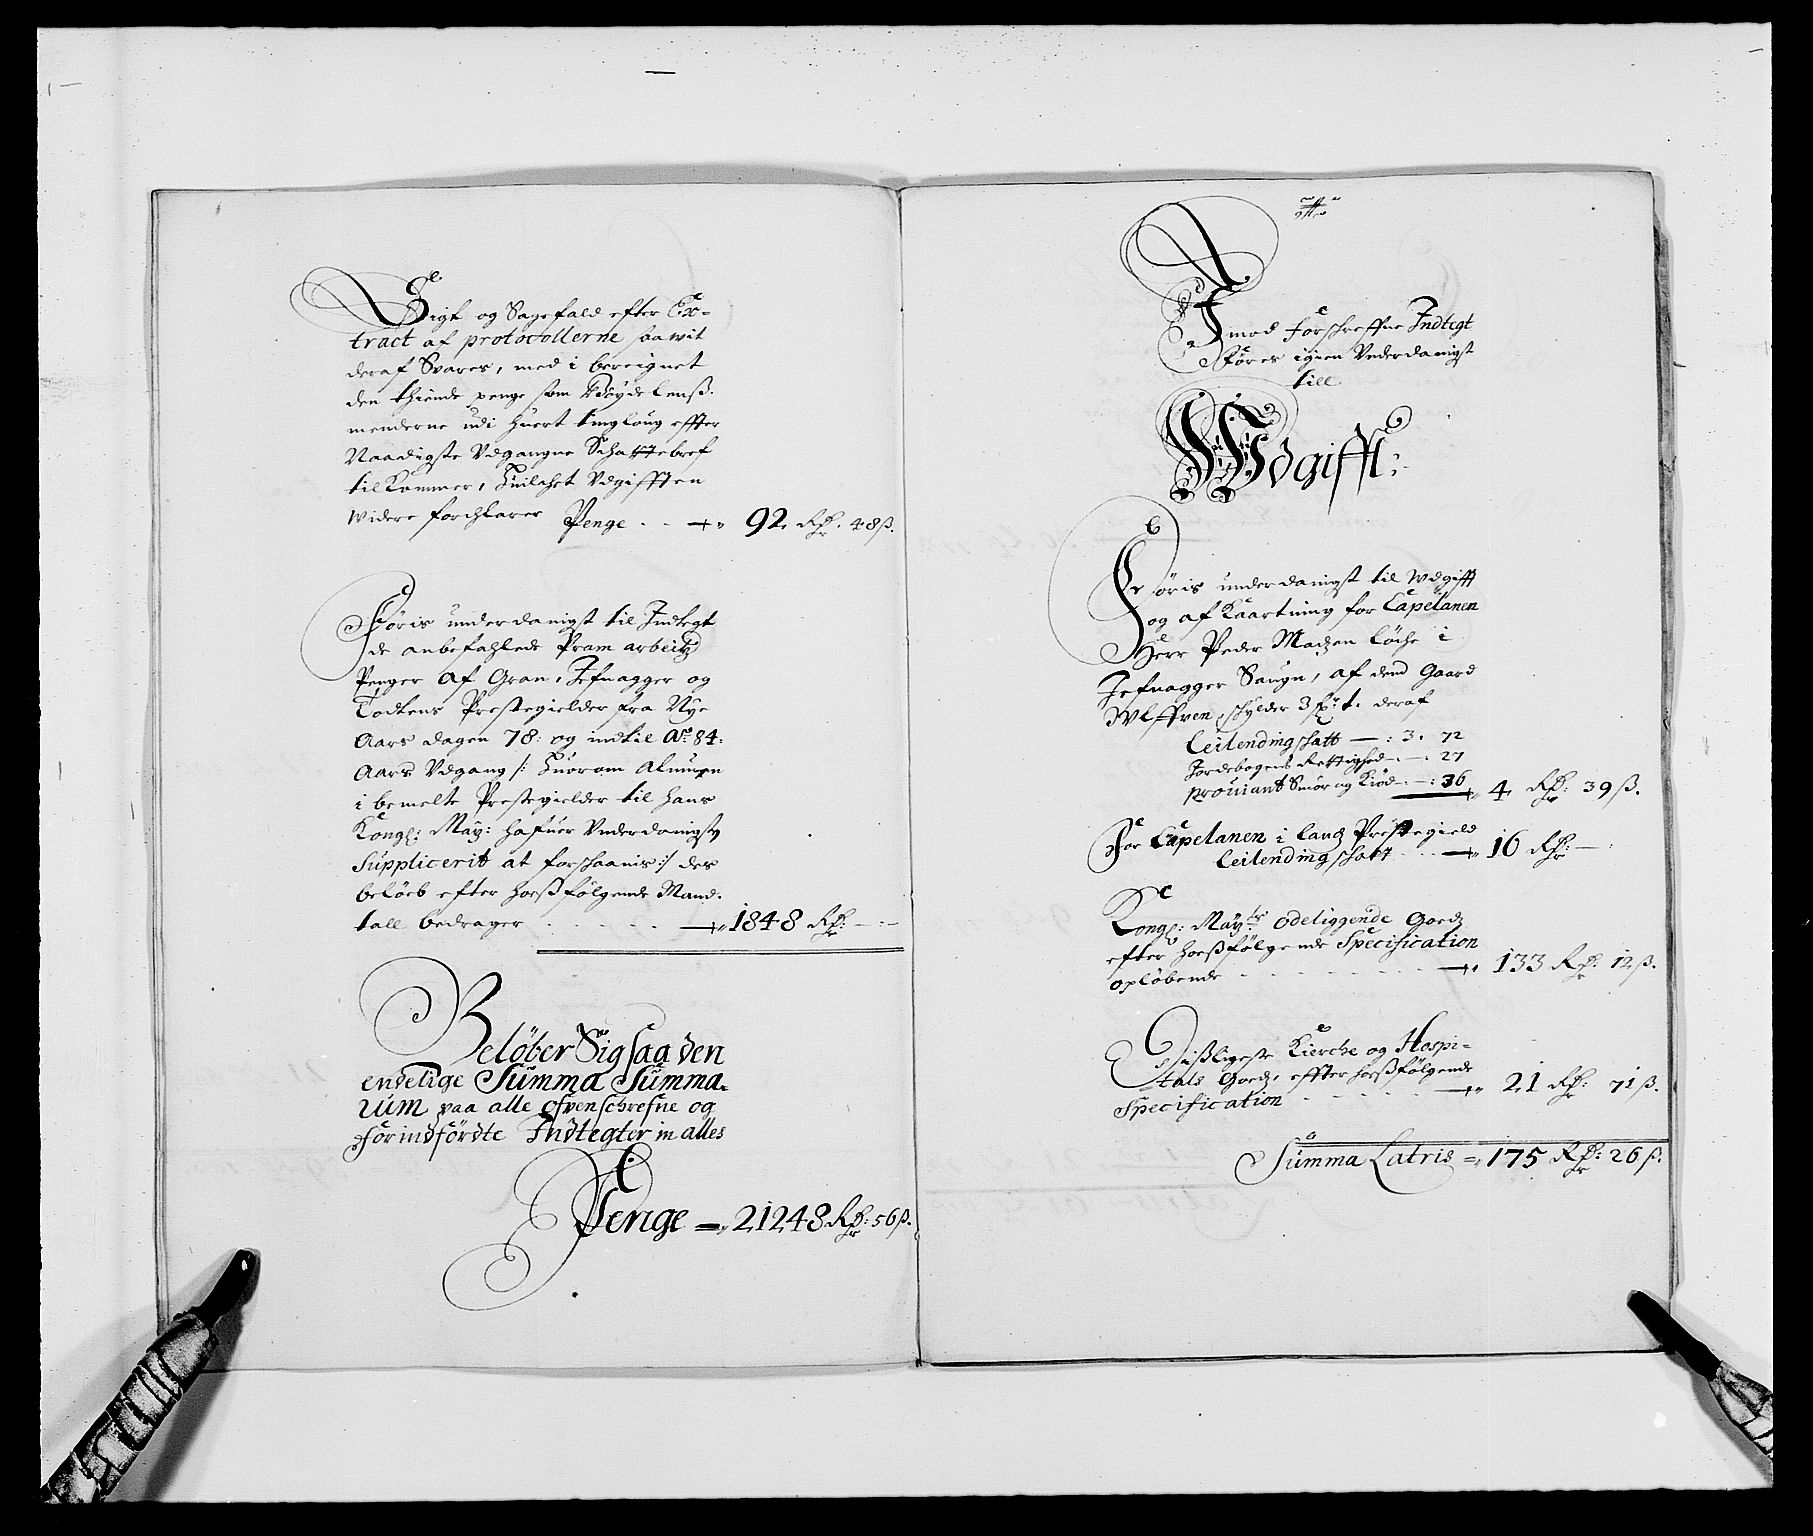 Sigt og Sagefald efter Ex-
tract af protocollerne saawit
deraf Svares, med i beregnet
den thiende penge som Bøyde lenß-
menderne udi huert tinglaug effter
Naadigste Udgangne Schattebref
tilkommer, huilchet Udgifften
widere forchlarer Penge - - 92 Rdr. 48 ß.
Føris underdanigst til Indtegt
de anbefahlede Pram arbeids
Penger af Gran, Jefnagger og
Todtens Prestegielder fra Nye
Aars dagen 78: og indtil Ao. 84:
Aars Udgang /: huorom Almuen
i bemelte Prestegielder til hans
Kongl: May: hafuer Underdanigst
Supplicerit at forschaanis :/ des
beløeb efter hoeßfølgende Mand-
tall bedrager - - - - - 1848 Rdr: - : -
Beløber Sig saa den
endelige Summa Summa-
rum paa alle ofvenschrefne og
forindførdte Indtegter in alles
Penge = 21248 Rdr: 56 ß.
A
Imod forschreffne Indtegt
føres igien Underdanigst
till
Udgifft:
Føris underdanigst til Udgifft
og af Kaartning for Capelanen
Herr Peder Madzen Løche i
Jefnagger Saugn, af dend Gaard
Wlffven, schylder 3 deraf
Leilendingschatt - : 3. 72
Jordebogens Rettighed - : - : 27
proviant Smør og Kiød - : - : 36 4 Rdr: 39 ß.
For Capelanen i Landz Prestegield
Leilendingschatt - - - 16 Rdr: - :
Kongl: Mayts ødeliggende Goedz
efter hoeßfølgende Specification
opløbende - - - - - 133 Rdr: 12 ß.
Disligeste Kierche og Hospi-
tals Goedz, effter hoeßfølgende
Specification - - - - - 21 Rdr: 71 ß.
Summa Latris = 175 Rdr: 26 ß.